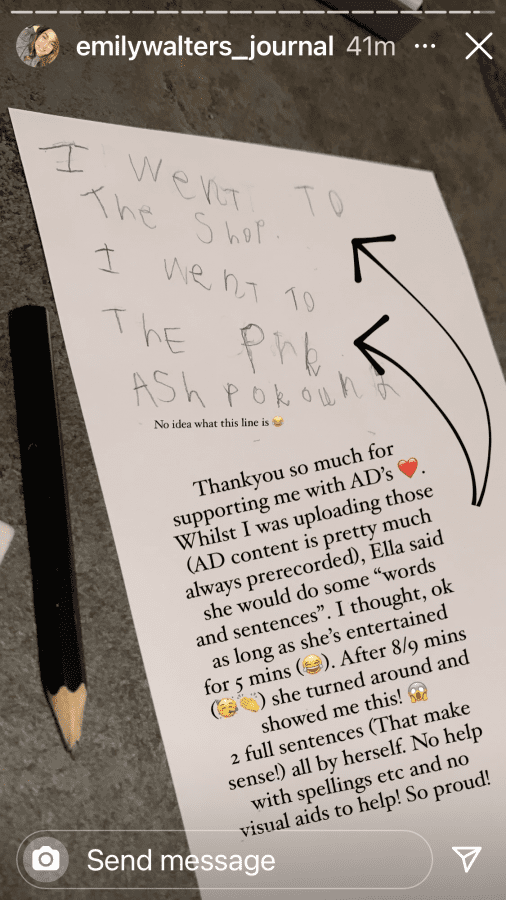 emilywalters_journal 41m
I WenT TO
The Shop.
I WenT TO
ThE Prk
ASh POKOun
No idea what this line is 😂
Thankyou so much for
supporting me with AD's ❤️.
Whilst I was uploading those
(AD content is pretty much
always prerecorded), Ella said
she would do some “words
and sentences”. I thought, ok
as long as she's entertained
for 5 mins (😂). After 8/9 mins
(🥳👏) she turned around and
showed me this! 😱
2 full sentences (That make
sense!) all by herself. No help
with spellings etc and no
visual aids to help! So proud!
Send message